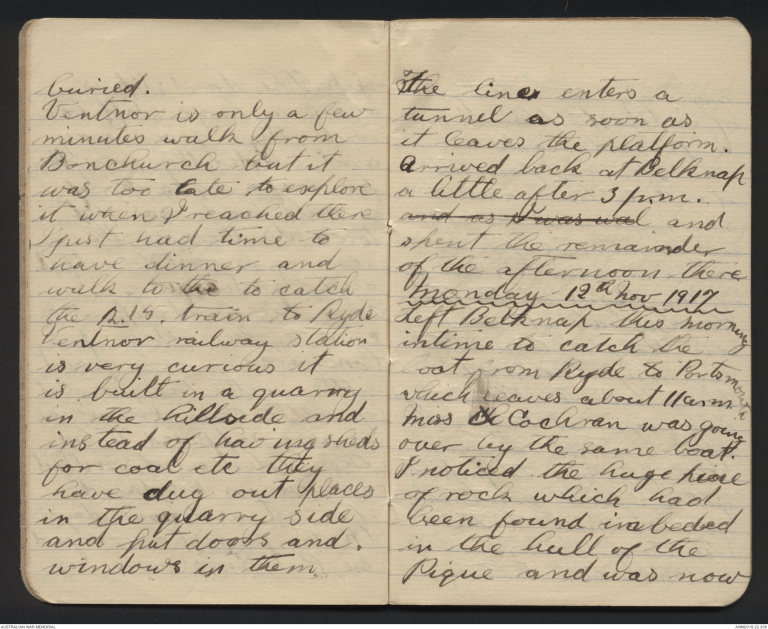 buried.
Ventnor is only a few
minutes walk from
Bonchurch but it
was too late to explore
it when I reached there
I just had time to
have dinner and
walk to the to catch
the 2.15. train to Ryde
Ventnor railway station
is very curious it
is built in a quarry
in the hillside and
instead of having sheds
for coal etc they
have dug out places
in the quarry side
and put doors and.
windows in them
The line enters a
tunnel as soon as
it leaves the platform.
Arrived back at Belknap
a little after 3 p.m.
and as I was wal and
spent the remainder
of the afternoon there
Monday 12th Nov 1917
Left Belknap this morning
intime to catch the
boat from Ryde to Portsmouth
which leaves about 11am
Miss Cochran was going
over by the same boat.
I noticed the huge piece
of rock which had
been found imbeded
in the hull of the
Pique and was now
AUSTRALIAN WAR MEMORIAL